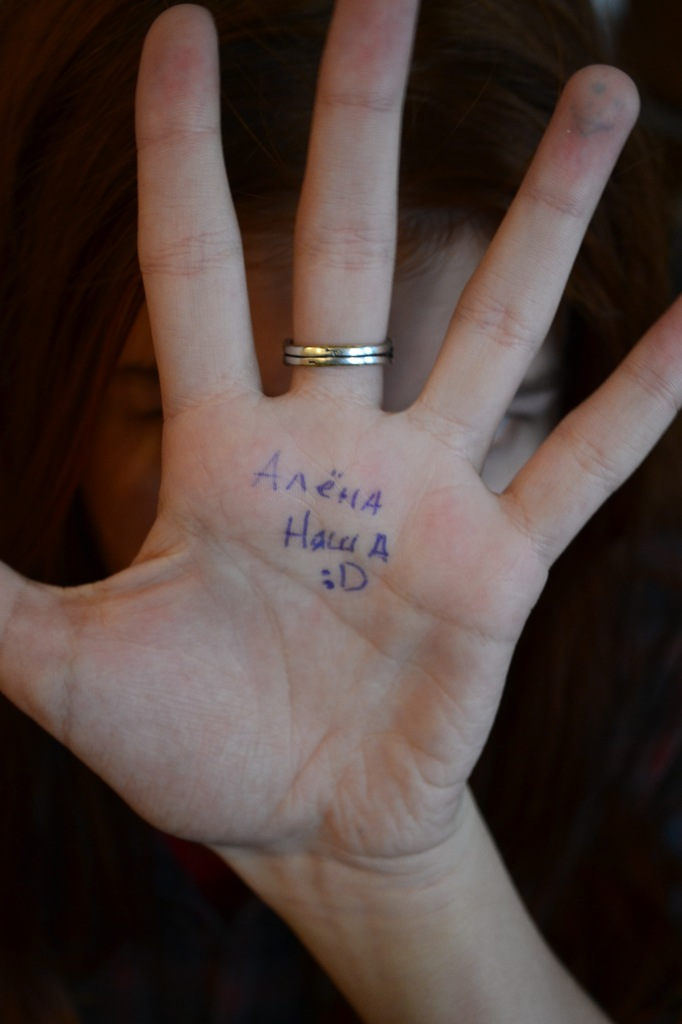 Алёна
Няш Д
:D